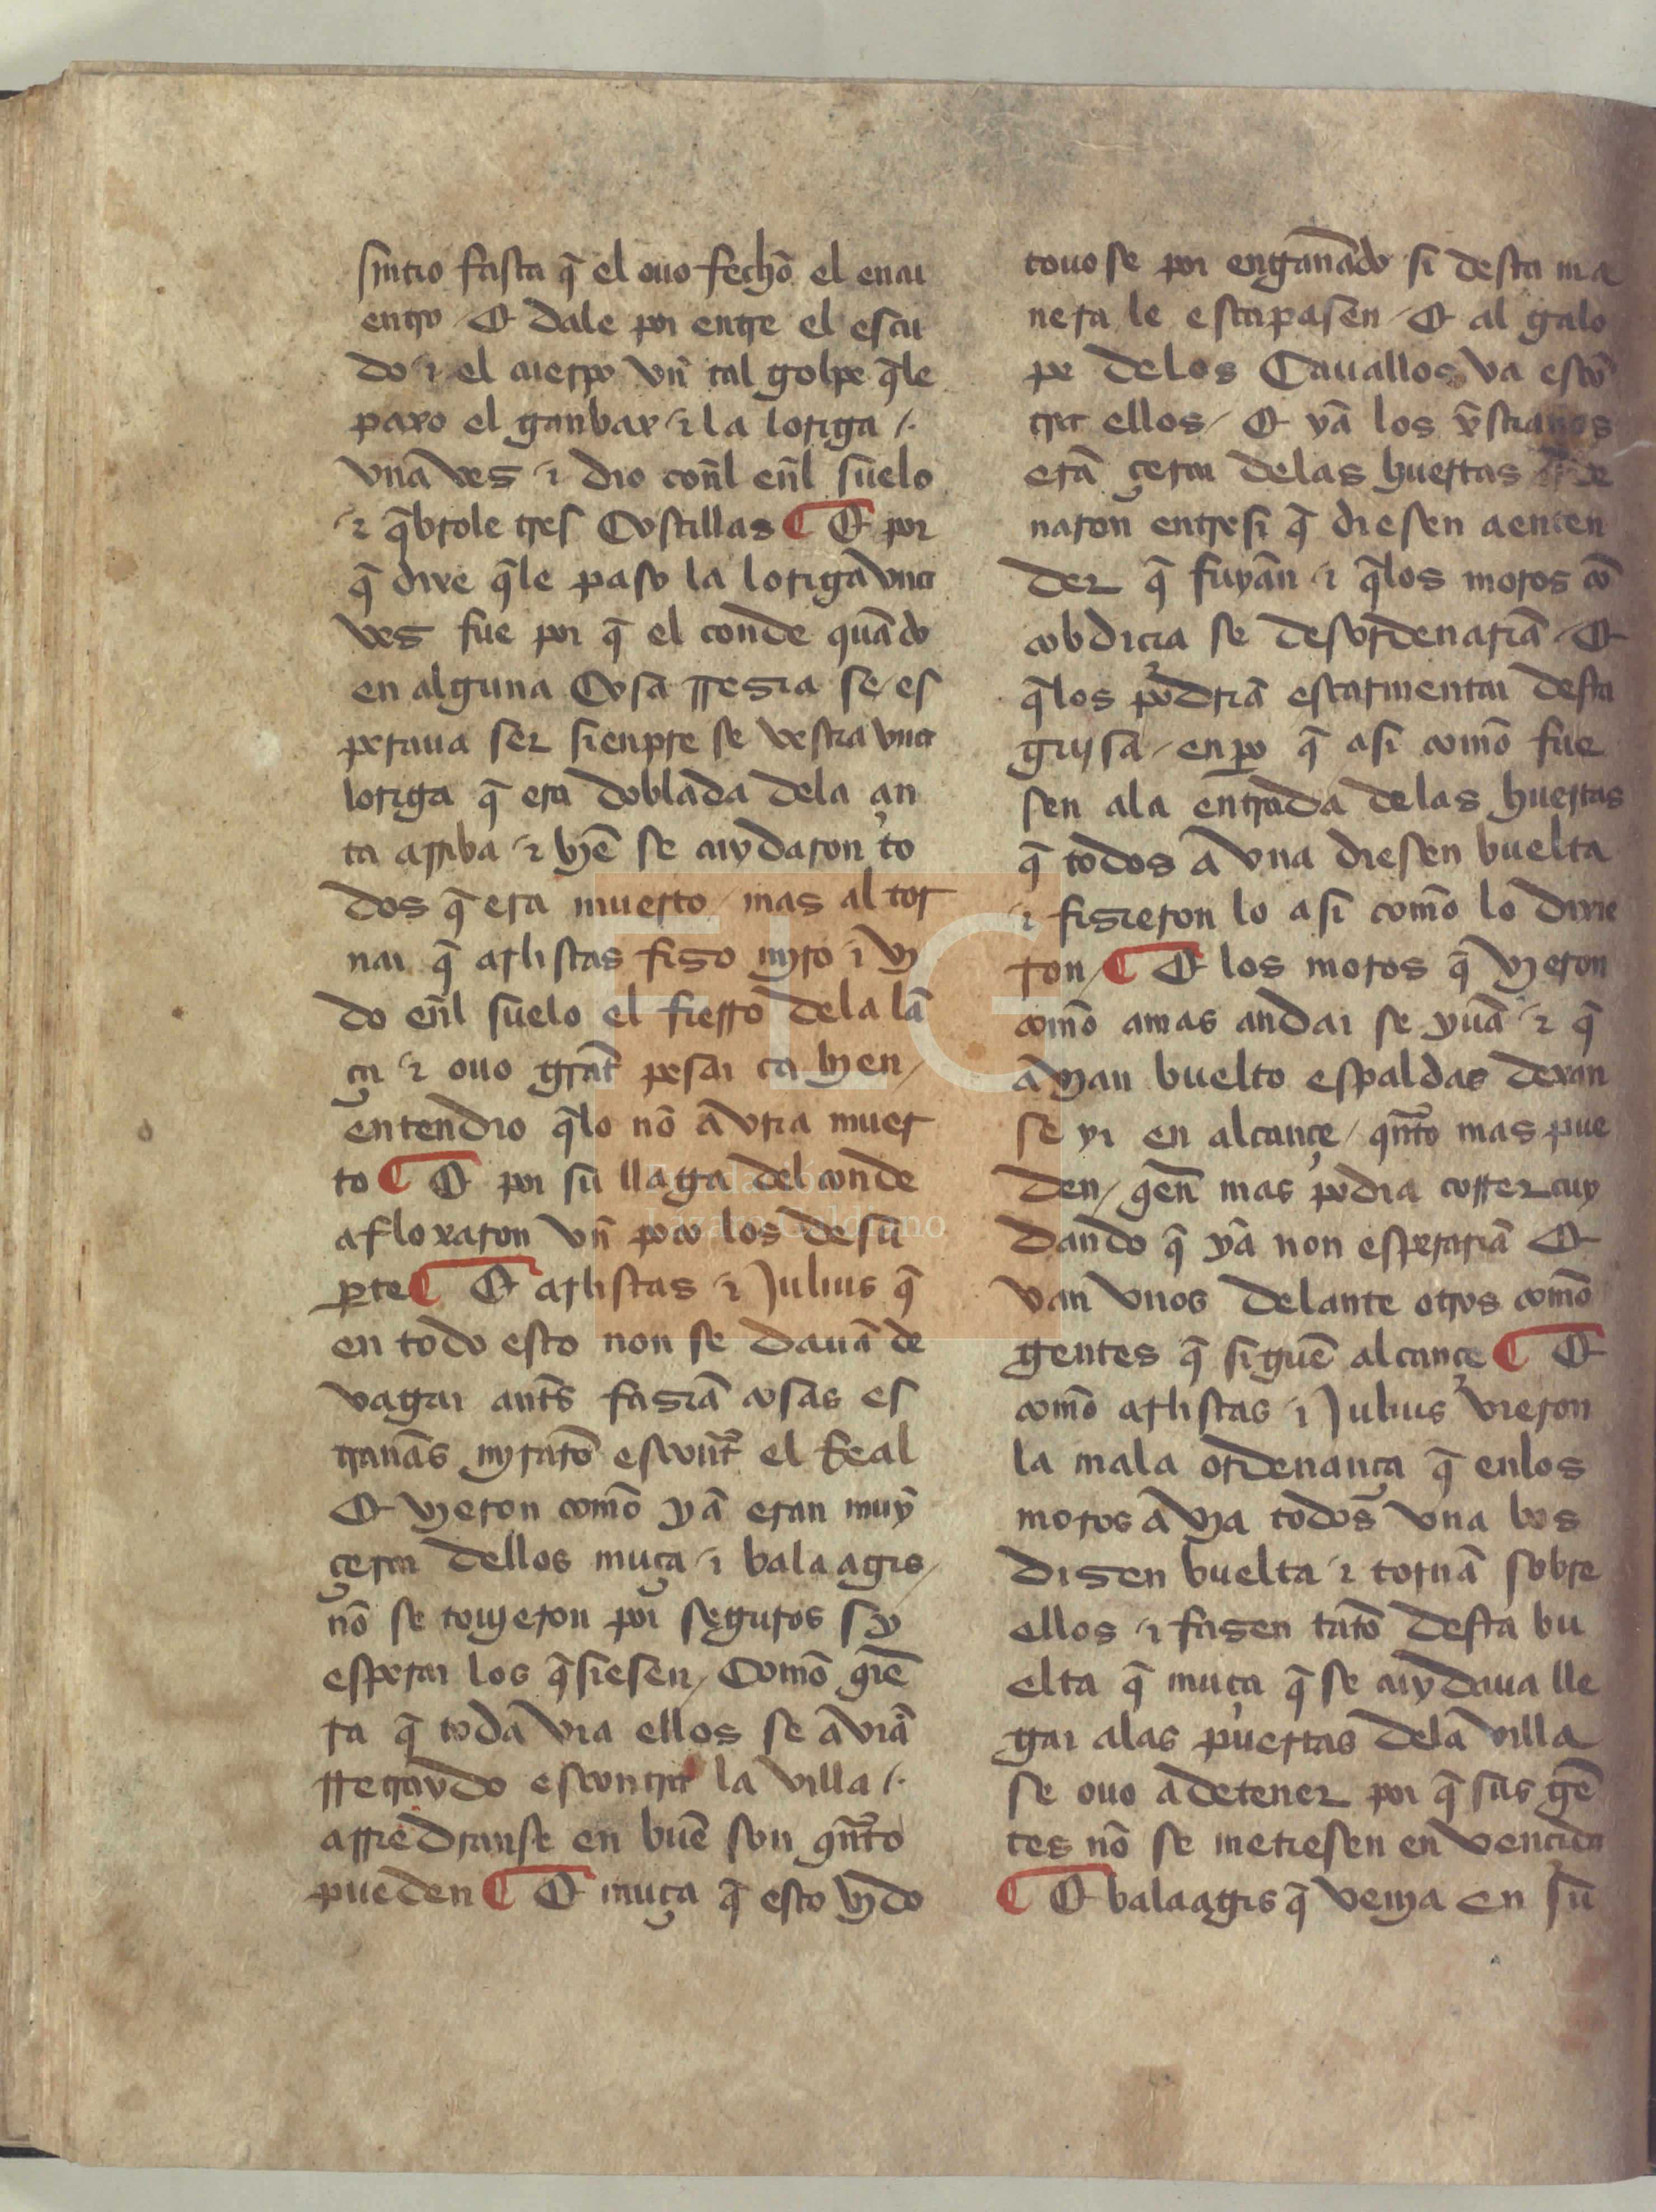 sintio fasta q̃ el ouo fechõ el encu
entro / Et dale por entre el escu
do ⁊ el cuerpo vñ tal golpe q̃le
paxo el ganbax ⁊ la loriga /.
vna ves ⁊ dio coñl eñl suelo
⁊ q̃brole tres Costillas ¶ Et por
q̃ dixe q̃le paso la loriga vna
ves fue por q̃ el conde quãdo
en alguna Cosa rresia se es
peraua ser sienpre se vestia vna
loriga q̃ era doblada dela çin
ta arriba ⁊ byẽ se cuydaron to
dos q̃ era muerto / mas al tor
nar q̃ arlistas fiso myro ⁊ vy
do eñl suelo el fierro dela lã
ça ⁊ ouo grãt pesar ca byen /
entendio q̃lo nõ avria muer
to ¶ Et por su llaga del conde
afloxaron vñ poco los de su
ꝑte ¶ Et arlistas ⁊ Julius q̃
en todo esto non se dauã de
vagar ant̃s fasiã cosas es
trañas myrarõ escont̃ el Real
Et vyeron comõ yã eran muỹ
çerca dellos muça ⁊ balaagis /
nõ se touyeron por seguros sy
esperar los q̃siesen / Comõ q̃ie
ra q̃ toda via ellos se aviã
rretraydo escontra la villa /.
arriedranse en buẽ son q̃nto
pueden ¶ Et muça q̃ esto vydo
touose por engañãdo si desta ma
nera le escapasen / Et al galo
pe delos Cauallos va escõ
tra ellos / Et yã los x̃stianos
erã çerca delas huertas
naron entresi q̃ diesen aenten
der q̃ fuyãn ⁊ q̃los moros cõ
cobdicia se desordenariã / Et
q̃los podriã escarmentar desta
guysa / enꝑo q̃ asi comõ fue
sen ala entrada delas huertas
q̃ todos a vna diesen buelta
⁊ fisieron lo asi comõ lo dixie
ron / ¶ Et los moros q̃ vyeron
comõ amas andar se yuã ⁊ q̃
avyan buelto espaldas dexan
se yr en alcançe / q̃nto mas pue
den / q̃en mas podia correr cuy
dando q̃ yã non esperariã Et
van vnos delante otros comõ
gentes q̃ siguẽ alcançe ¶ Et
comõ arlistas ⁊ Julius vieron
la mala ordenança q̃ enlos
moros avya todos vna bos
disen buelta ⁊ tornã sobre
ellos ⁊ fasen tãto desta bu
elta q̃ muça q̃ se cuydaua lle
gar alas puertas dela villa
se ouo adetener por q̃ sus gẽ
tes nõ se metiesen en vencida
¶ Et balaagis q̃ venya en su
FLG
Fundación
Lázaro Galdiano